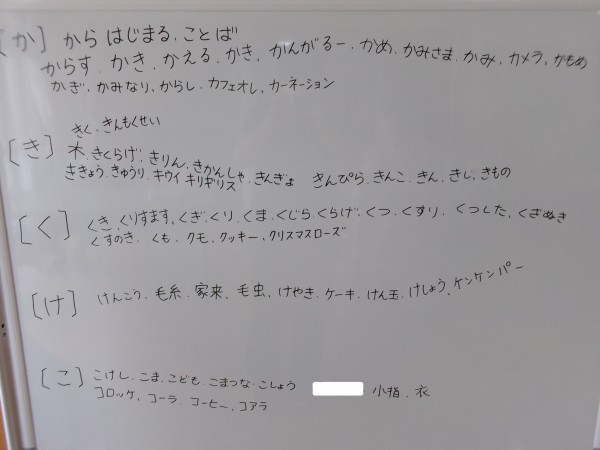 [か] から はじまる、ことば
からす、かき、かえる、かき、かんがるー、かめ、かみさま、かみ、カメラ、かもめ
かぎ、かみなり、からし、カフェオレ、カーネーション
きく、きんもくせい
[き] 木、きくらげ、きりん、きかんしゃ、きんぎょ きんぴら、きんこ、きん、きし、きもの
ききょう、きゅうり、キウイ キリギリス
[く] くき、くりすます、くぎ、くり、くま、くじら、くらげ、くつ、くすり、くつした、くぎぬき
くすのき、くも、クモ、クッキー、クリスマスローズ
[け] けんこう、毛糸、家来、毛虫、けやき、ケーキ、けん玉、けしょう、ケンケンパー
[こ] こけし、こま、こども、こまつな、こしょう 小指、衣
コロッケ、コーラ コーヒー、コアラ